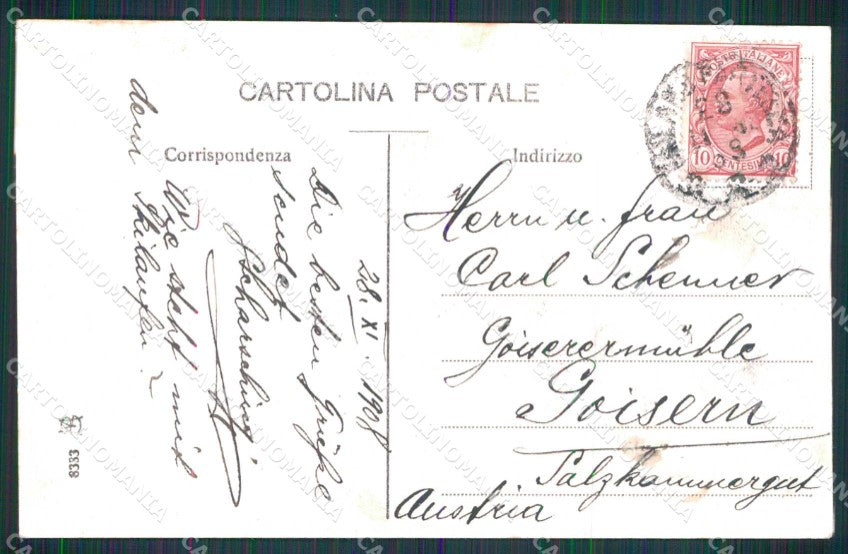 CARTOLINA POSTALE
Corrispondenza
Indirizzo
POSTE ITALIANE
10 CENTESIMI 10
28. XI. 1908
Die besten Grüße
sendet
Wie steht mit
dem Skilaufen?
Herrn u. Frau
Carl Schenner
Goiserermühle
Goisern
Salzkammergut
Austria
8383
CARTOLINOMANIA